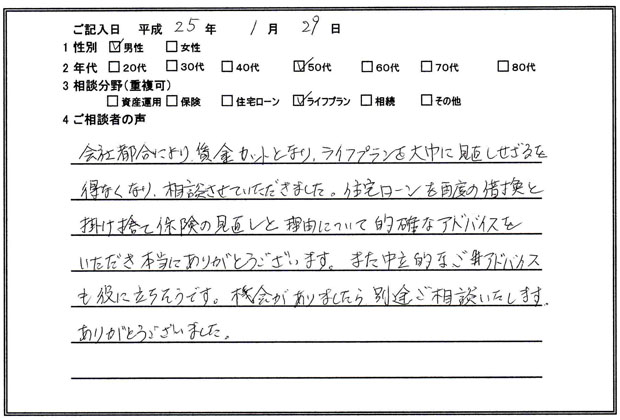 ご記入日 平成 25 年 1 月 29 日
1 性別 ☑男性 □女性
2 年代 □20代 □30代 □40代 ☑50代 □60代 □70代 □80代
3 相談分野(重複可)
□資産運用 □保険 □住宅ローン ☑ライフプラン □相続 □その他
4 ご相談者の声
会社都合により、賃金カットとなり、ライフプランを大巾に見直しせざるを
得なくなり、相談させていただきました。住宅ローンを再度の借換と
掛け捨て保険の見直しと理由について的確なアドバイスを
いただき本当にありがとうございます。また中立的なご アドバイス
も役に立ちそうです。機会がありましたら別途ご相談いたします。
ありがとうございました。